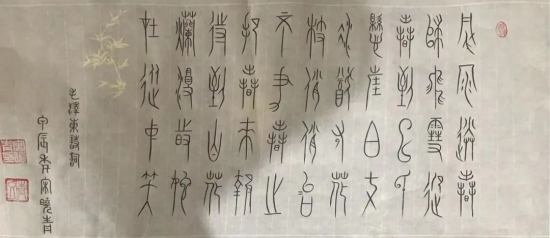 風雨送春
歸飛雪迎
春到已是
懸崖百丈
冰猶有花
枝俏俏也
不爭春只
把春來報
待到山花
爛漫時她
在叢中笑
毛澤東詩詞
甲辰春宋曉青